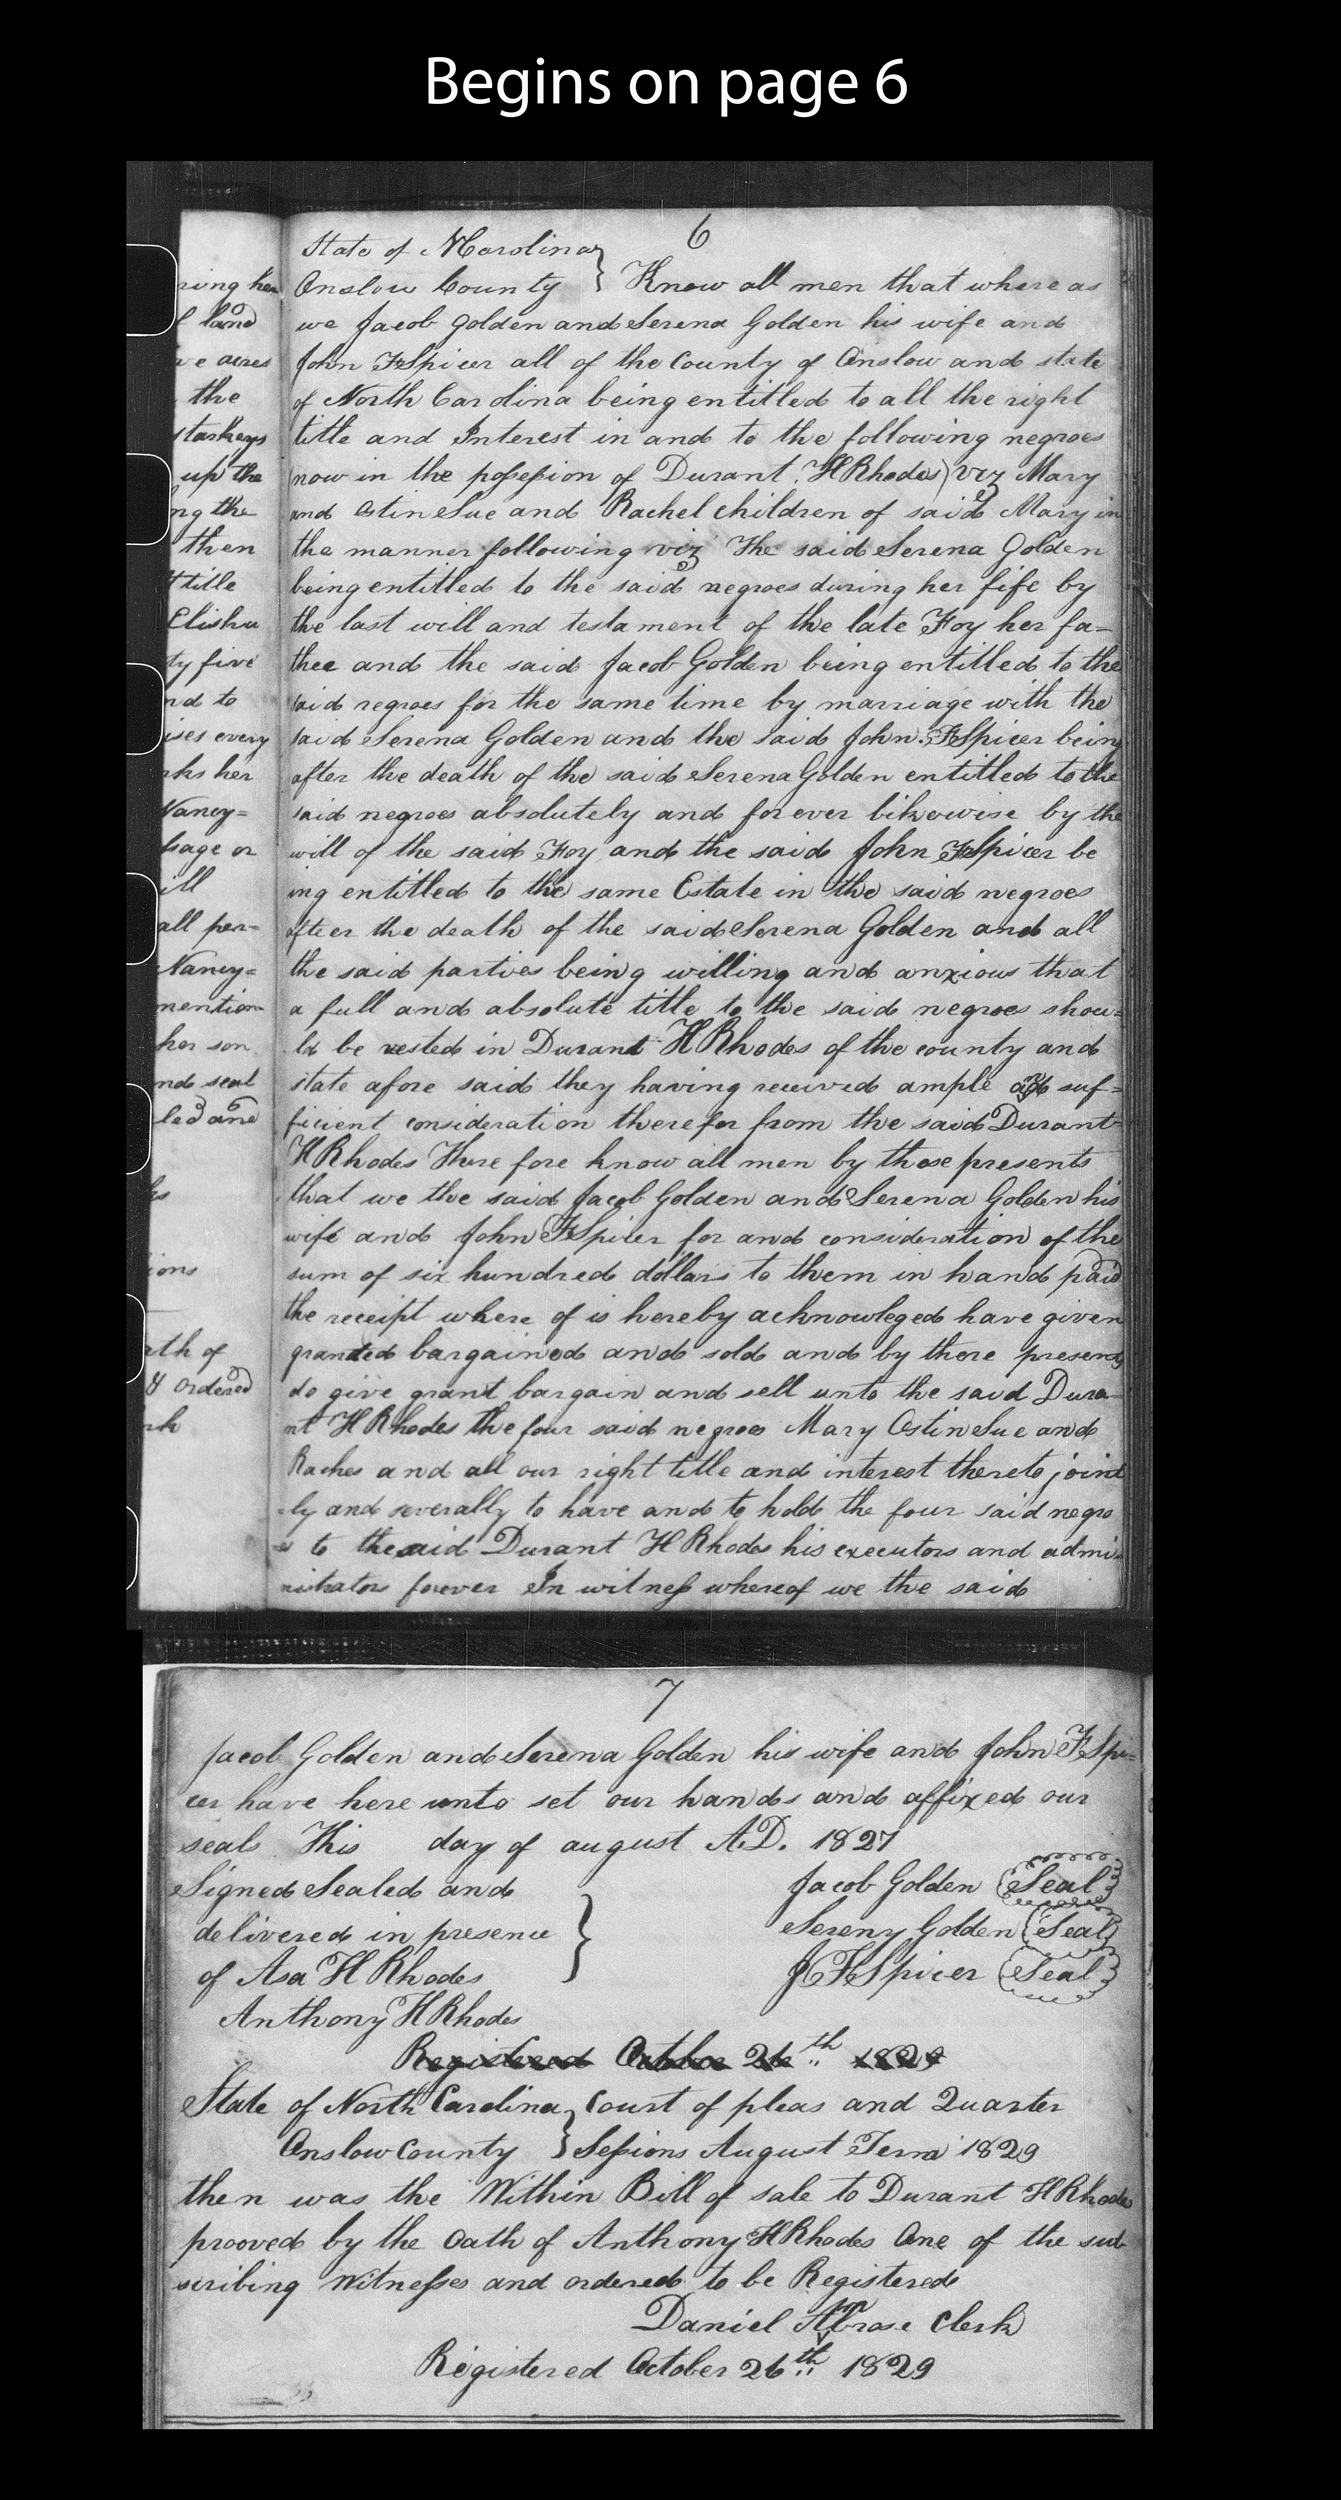 Begins on page 6
6
State of N Carolina }
Onslow County } Know all men that where as
we Jacob Golden and Serena Golden his wife and
John F Spicer all of the County of Onslow and state
of North Carolina being entitled to all the right
title and Interest in and to the following negroes
(now in the possession of Durant H Rhodes) viz Mary
and Ostin Sue and Rachel children of said Mary in
the manner following viz The said Serena Golden
being entitled to the said negroes during her fife by
the last will and testament of the late Foy her fa-
thee and the said Jacob Golden being entitled to the
said negroes for the same time by marriage with the
said Serena Golden and the said John F Spicer being
after the death of the said Serena Golden entitled to the
said negroes absolutely and forever likewise by the
will of the said Foy and the said John F Spicer be
ing entitled to the same Estate in the said negroes
after the death of the said Serena Golden and all
the said parties being willing and anxious that
a full and absolute title to the said negroes shou=
ld be vested in Durant H Rhodes of the county and
state afore said they having received ample and suf=
ficient consideration therefor from the said Durant
H Rhodes There fore know all men by these presents
that we the said Jacob Golden and Serena Golden his
wife and John F Spicer for and consideration of the
sum of six hundred dollars to them in hand paid
the receipt where of is hereby acknowleged have given
granted bargained and sold and by there presents
do give grant bargain and sell unto the said Dura-
nt H Rhodes the four said negroes Mary Ostin Sue and
Raches and all our right title and interest thereto joint
=ly and severally to have and to hold the four said negro
es to the said Durant H Rhodes his executors and admi=
nistrators forever In witness whereof we the said
ring her
land
acres
the
starkeys
up the
ng the
then
title
Elisha
ty five
nd to
ises every
rks her
Nancy=
sage or
ill
all per=
Nancy=
mention=
her son
nd seal
led and
ions
ath of
& ordered
rk
7
Jacob Golden and Serena Golden his wife and John F Spi=
cer have here unto set our hands and affixed our
seals This day of august A.D. 1827
Signed Sealed and Jacob Golden Seal
delivered in presence } Sereny Golden Seal
of Asa H Rhodes J F Spicer Seal
Anthony H Rhodes
Registered October 26th 1829
State of North Carolina } Court of pleas and Quarter
Onslow County } Sessions August Term 1829
then was the Within Bill of sale to Durant H Rhodes
prooved by the Oath of Anthony H Rhodes One of the sub
scribing Witnesses and ordered to be Registered
Daniel Ambrose Clerk
Registered October 26th 1829